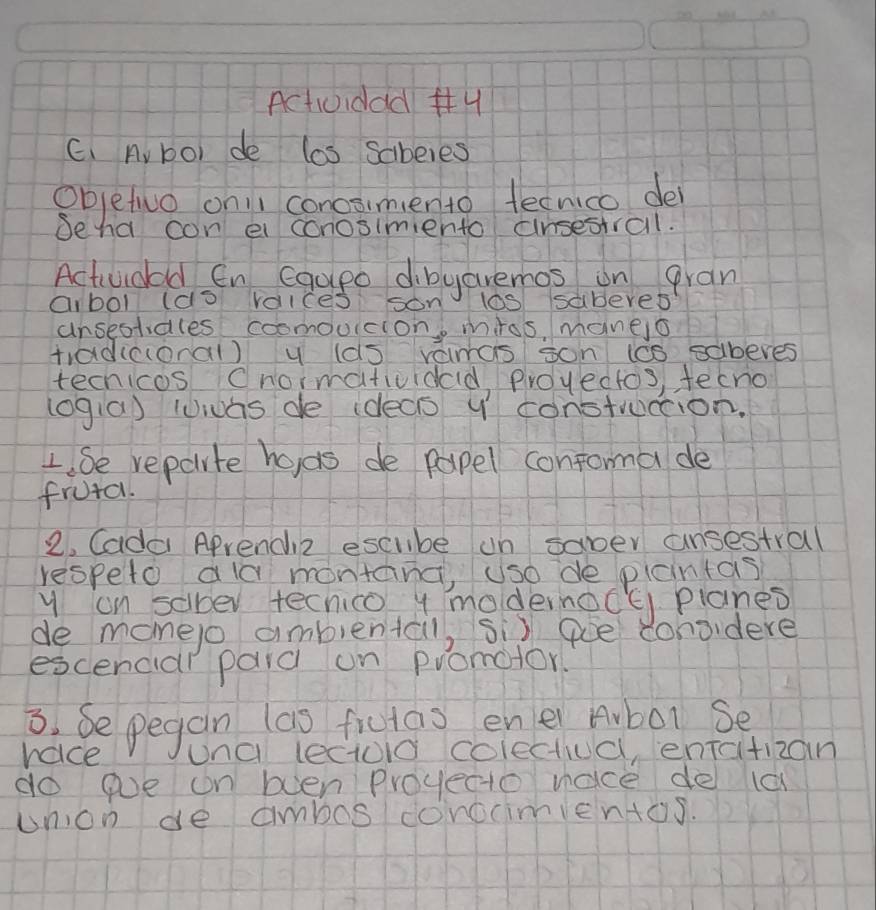 Actividad #4
El Arbol de los Saberes
Objetivo unir conosimiento tecnico del
Sena con el conosimiento ansestral.
Actividad En Equipo dibujaremos un gran
arbol las raices son los saberes
ansestrales cosmovicion, mitos, manejo
tradicional) y las ramas son los saberes
tecnicos (normatividad, Proyectos, tecno
logia) lluvias de ideas y construccion.
1. Se reparte hojas de papel conforma de
fruta.
2. Cada Aprendiz escribe un saber ansestral
respeto a la montaña, uso de plantas
y un saber tecnico y moderno planes
de manejo ambiental, que considere
escencial para un promotor.
3. Se pegan las frutas en el Arbol Se
hace una lectora colectiva, enfatizan
do que un buen Proyecto nace de la
union de ambos conocimientos.